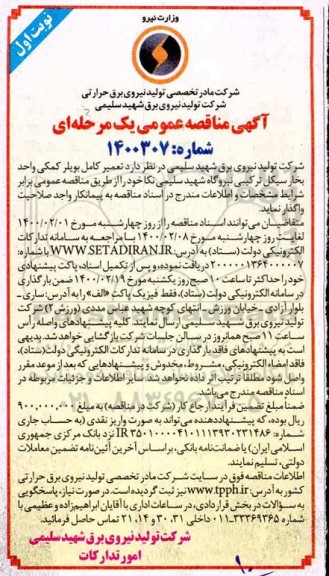 وزارت نیرو
نوبت اول
شرکت مادر تخصصی تولید نیروی برق حرارتی
شرکت تولید نیروی برق شهید سلیمی
آگهی مناقصه عمومی یک مرحله‌ای
شماره: ۱۴۰۰۳۰۷
شرکت تولید نیروی برق شهید سلیمی در نظر دارد تعمیر کامل بویلر کمکی واحد
بخار سیکل ترکیبی نیروگاه شهید سلیمی نکا خود را از طریق مناقصه عمومی برابر
شرایط مشخصات و اطلاعات مندرج در اسناد مناقصه به پیمانکار واجد صلاحیت
واگذار نماید.
متقاضیان می‌توانند اسناد مناقصه را از روز چهارشنبه مورخ ۱۴۰۰/۰۲/۰۱
لغایت روز چهارشنبه مورخ ۱۴۰۰/۰۲/۰۸ با مراجعه به سامانه تدارکات
الکترونیکی دولت (ستاد) به آدرس: WWW.SETADIRAN.IR با شماره:
۲۰۰۰۰۰۱۳۶۴۰۰۰۰۰۷ دریافت نموده و پس از تکمیل اسناد، پاکت پیشنهادی
خود را حداکثر تا ساعت ۱۰ صبح روز یکشنبه مورخ ۱۴۰۰/۰۲/۱۹ ضمن بارگذاری
در سامانه الکترونیکی دولت (ستاد)، فقط فیزیک پاکت «الف» را به آدرس: ساری -
بلوار آزادی - خیابان ورزش - انتهای کوچه شهید عباس مددی (ورزش ۳) شرکت
تولید نیروی برق شهید سلیمی ارسال نمایند. کلیه پیشنهادهای واصله رأس
ساعت ۱۱ صبح همانروز در سالن جلسات شرکت بازگشایی خواهد شد. بدیهی
است به پیشنهادهای فاقد بارگذاری در سامانه تدارکات الکترونیکی دولت (ستاد)،
فاقد امضاء الکترونیکی، مشروط، مخدوش و پیشنهادهایی که بعد از موعد مقرر
واصل شود مطلقا ترتیب اثر داده نخواهد شد. سایر اطلاعات و جزئیات مربوطه در
اسناد مناقصه مندرج می‌باشد.
ضمنا مبلغ تضمین فرآیند ارجاع کار (شرکت در مناقصه) به مبلغ ۹۰۰,۰۰۰,۰۰۰
ریال بوده، که پیشنهاددهنده می‌تواند به صورت واریز نقدی (به حساب جاری
اسلامی ایران) یا ضمانت‌نامه بانکی، براساس آخرین آئین‌نامه تضمین معاملات
دولتی، تسلیم نمایند.
اطلاعات مناقصه فوق در سایت شرکت مادر تخصصی تولید نیروی برق حرارتی
کشور به آدرس: www.tpph.ir نیز ثبت گردیده است. در صورت نیاز، پاسخگویی
به سؤالات در بخش قراردادی، در ساعات اداری با آقایان ابراهیم‌زاده و عظیمی با
شماره ۰۱۱-۳۳۳۶۹۳۶۵ داخلی ۳۰،۳۱ و ۲۱،۱۴ تماس حاصل فرمائید.
شرکت تولید نیروی برق شهید سلیمی
امور تدارکات